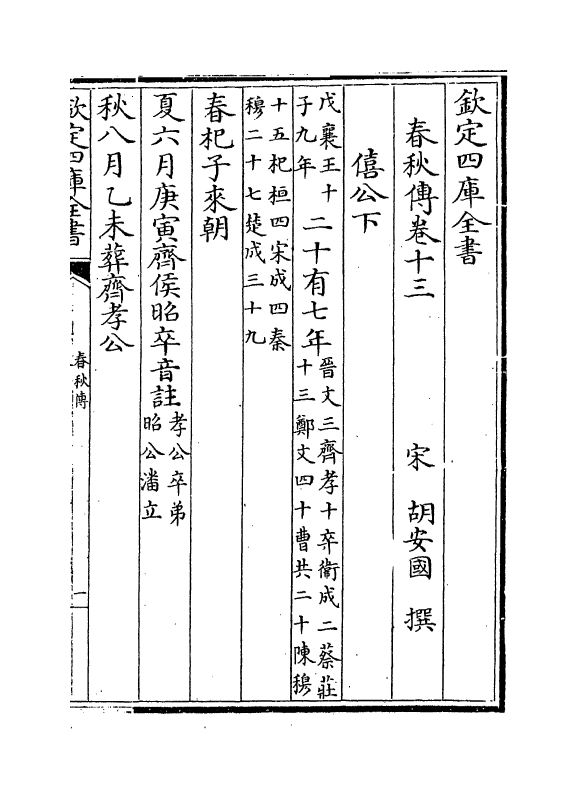 欽定四庫全書
春秋傳卷十三
宋 胡安國 撰
僖公下
戊襄王十
子九年
二十有七年
晉文三齊孝十卒衛成二蔡莊
十三鄭文四十曹共二十陳穆
十五杞桓四宋成四秦
穆二十七楚成三十九
春杞子來朝
夏六月庚寅齊侯昭卒音註
孝公卒弟
昭公潘立
秋八月乙未葬齊孝公
欽定四庫全書
春秋傳
一